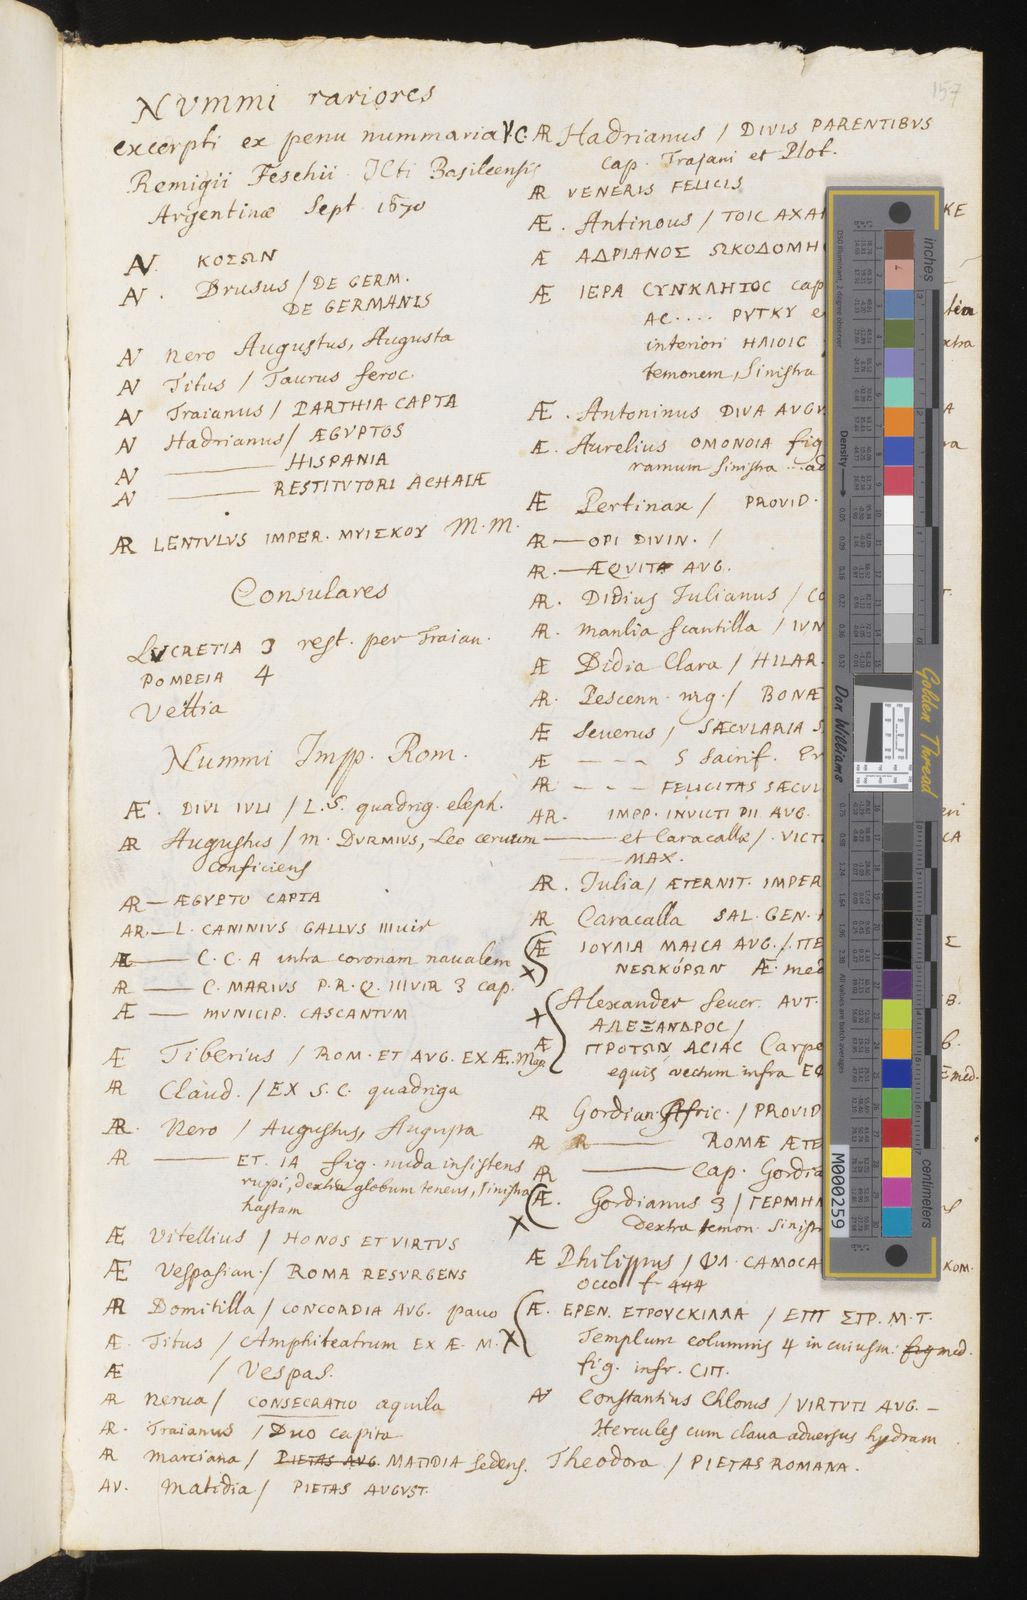 157
Nummi rariores
excerpti ex penu nummaria VC.
Remigii Feschii ICti Basileensis
Argentinæ Sept. 1670
AV ΚΟΣΩΝ
AV. Drusus / DE GERM.
DE GERMANIS
AV Nero Augustus, Augusta
AV Titus / Taurus feroc.
AV Traianus / PARTHIA CAPTA
AV Hadrianus / ÆGVPTOS
AV ——— HISPANIA
AV ——— RESTITVTORI ACHAIÆ
AR LENTVLVS IMPER. ΜΥΙΣΚΟΥ M. M.
Consulares
LVCRETIA 3 rest. per Traian.
POMPEIA 4
Vettia
Nummi Impp. Rom.
Æ. DIVI IVLI / L. S. quadrig. eleph.
AR Augustus / M. DVRMIVS, Leo ceruum
conficiens
AR — ÆGVPTO CAPTA
AR. — L. CANINIVS GALLVS IIIvir
—— C. C. A intra coronam naualem
AR —— C. MARIVS P. R. Q. IIIVIR 3 cap.
Æ —— MVNICIP. CASCANTVM
Æ Tiberius / ROM. ET AVG. EX Æ. Mag.
AR Claud. / EX S. C. quadriga
AR. Nero / Augustus, Augusta
AR ——— ET. IA fig. nuda insistens
rupi, dextra globum tenens, sinistra
hastam
Æ Vitellius / HONOS ET VIRTVS
Æ Vespasian. / ROMA RESVRGENS
AR Domitilla / CONCORDIA AVG. pauo
Æ. Titus / Amphiteatrum EX Æ. M.
Æ / Vespas.
AR Nerua / CONSECRATIO aquila
AR. Traianus / Duo capita
AR Marciana / PIETAS AVG. MATIDIA sedens.
AV. Matidia / PIETAS AVGVST.
AR Hadrianus / DIVIS PARENTIBVS
Cap. Trajani et Plot.
AR VENERIS FELICIS
Æ. Antinous / ΤΟΙC ΑΧΑΙ ΚΕ
Æ ΑΔΡΙΑΝΟΣ ΩΚΟΔΟΜΗ
Æ ΙΕΡΑ CΥΝΚΛΗΤΟC cap
AC.... PVTKY
interiori ΗΛΙΟΙC xtra
temonem, sinistra
Æ. Antoninus DIVA AVGV A
Æ. Aurelius ΟΜΟΝΟΙΑ fig ra
ramum sinistra ... ad
Æ Pertinax / PROVID.
AR — OPI DIVIN. /
AR. — ÆQVITA AVG.
AR. Didius Iulianus / CO T.
AR. Manlia Scantilla / IVN
Æ Didia Clara / HILAR.
AR. Pescenn. Nig. / BONÆ
Æ Seuerus / SÆCVLARIA S.
Æ - - - S Sacrif.
AR - - - FELICITAS SÆCVL
AR. IMPP. INVICTI PII AVG. eri
——— et Caracallæ / VICT CA
——— MAX.
AR. Iulia / ÆTERNIT. IMPER
AR Caracalla SAL. GEN.
Æ ΙΟΥΛΙΑ ΜΑΙCΑ ΑVG. / ΠΕ Σ
ΝΕΩΚΟΡΩΝ Æ. med
Alexander Seuer. AVT. B.
ΑΛΕΞΑΝΔΡΟC /
Æ ΠΡΟΤΩΝ ΑCΙΑC Carpe b.
equis vectum infra ΕΦ Æ med.
AR Gordian. Afric. / PROVID
AR ——— ROMÆ ÆTE
AR ——— Cap. Gordia
Æ. Gordianus 3 / ΓΕΡΜΗΝ
Dextra temon. sinistr
Æ Philippus / ΦΛ. CAMOCA ΚΟΜ.
occo f. 444
Æ. ΕΡΕΝ. ΕΤΡΟΥCΚΙΛΛΑ / ΕΠΙ ΣΤΡ. Μ. Τ.
Templum columnis 4 in cuius m. fig med.
fig. infr. CΙΠ.
AV Constantius Chlorus / VIRTVTI AVG. —
Hercules cum claua aduersus hydram
Theodora / PIETAS ROMANA.
inches
centimeters
D50 Illuminant, 2 degree observer
Density
Golden Thread
Don Williams
All values are batch averages
M000259